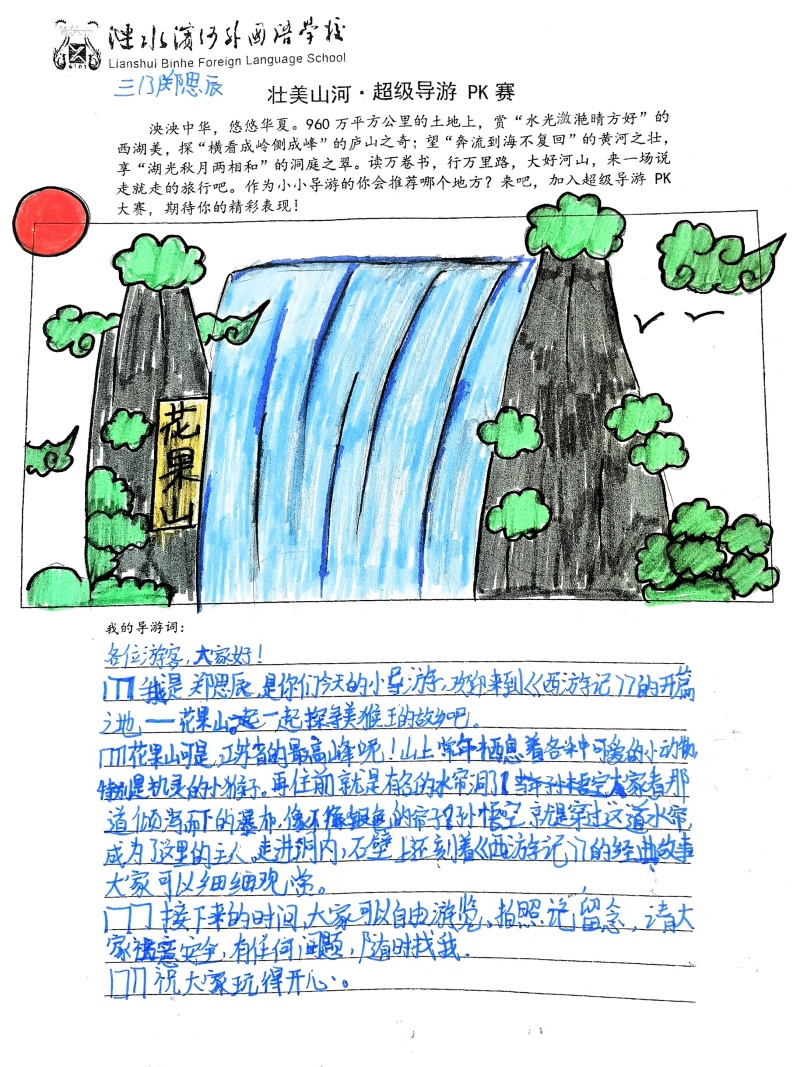 涟水滨河外国语学校
Lianshui Binhe Foreign Language School
三(13)郑思辰
壮美山河·超级导游 PK 赛
泱泱中华，悠悠华夏。960 万平方公里的土地上，赏“水光潋滟晴方好”的
西湖美，探“横看成岭侧成峰”的庐山之奇；望“奔流到海不复回”的黄河之壮，
享“湖光秋月两相和”的洞庭之翠。读万卷书，行万里路，大好河山，来一场说
走就走的旅行吧。作为小小导游的你会推荐哪个地方？来吧，加入超级导游 PK
大赛，期待你的精彩表现！
花果山
我的导游词：
各位游客，大家好！
我是郑思辰，是你们今天的小导游，欢迎来到《西游记》的开篇
之地——花果山。一起探寻美猴王的故乡吧。
花果山可是江苏省的最高峰呢！山上常年栖息着各种可爱的小动物
特别是机灵的小猴子。再往前就是有名的水帘洞了！当年孙悟空大家看那
道倾泻而下的瀑布，像不像银色的帘子？孙悟空就是穿过这道水帘，
成为了这里的主人。走进洞内，石壁上还刻着《西游记》的经典故事
大家可以细细观赏。
接下来的时间，大家可以自由游览、拍照、留念，请大
家注意安全，有任何问题，随时找我.
祝大家玩得开心。